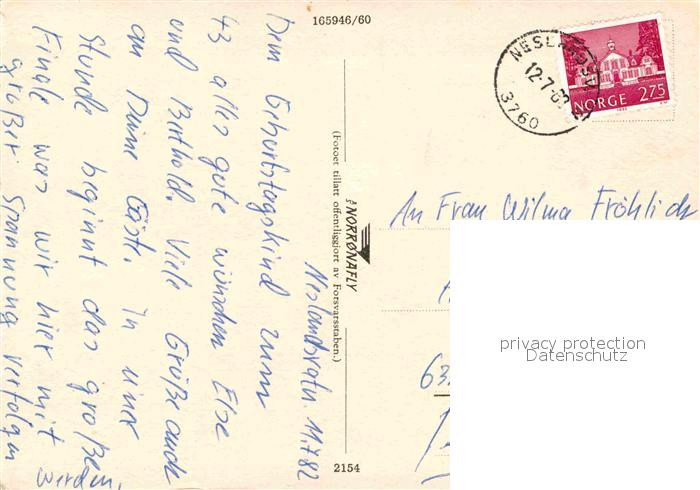 165946/60
Neslandsvatn 11.7.82
Dem Geburtstagskind zum
43 alles gute wünschen Else
und Berthold. Viele Grüße auch
an Deine Gäste. In einer
Stunde beginnt das große
Finale was wir hier mit
großer Spannung verfolgen
werden.
(Fotoet tillatt offentliggjort av Forsvarsstaben.)
A/S NORRØNAFLY
2154
12-7-8
3760
NORGE 275
An Frau Wilma Fröhlich
privacy protection
Datenschutz